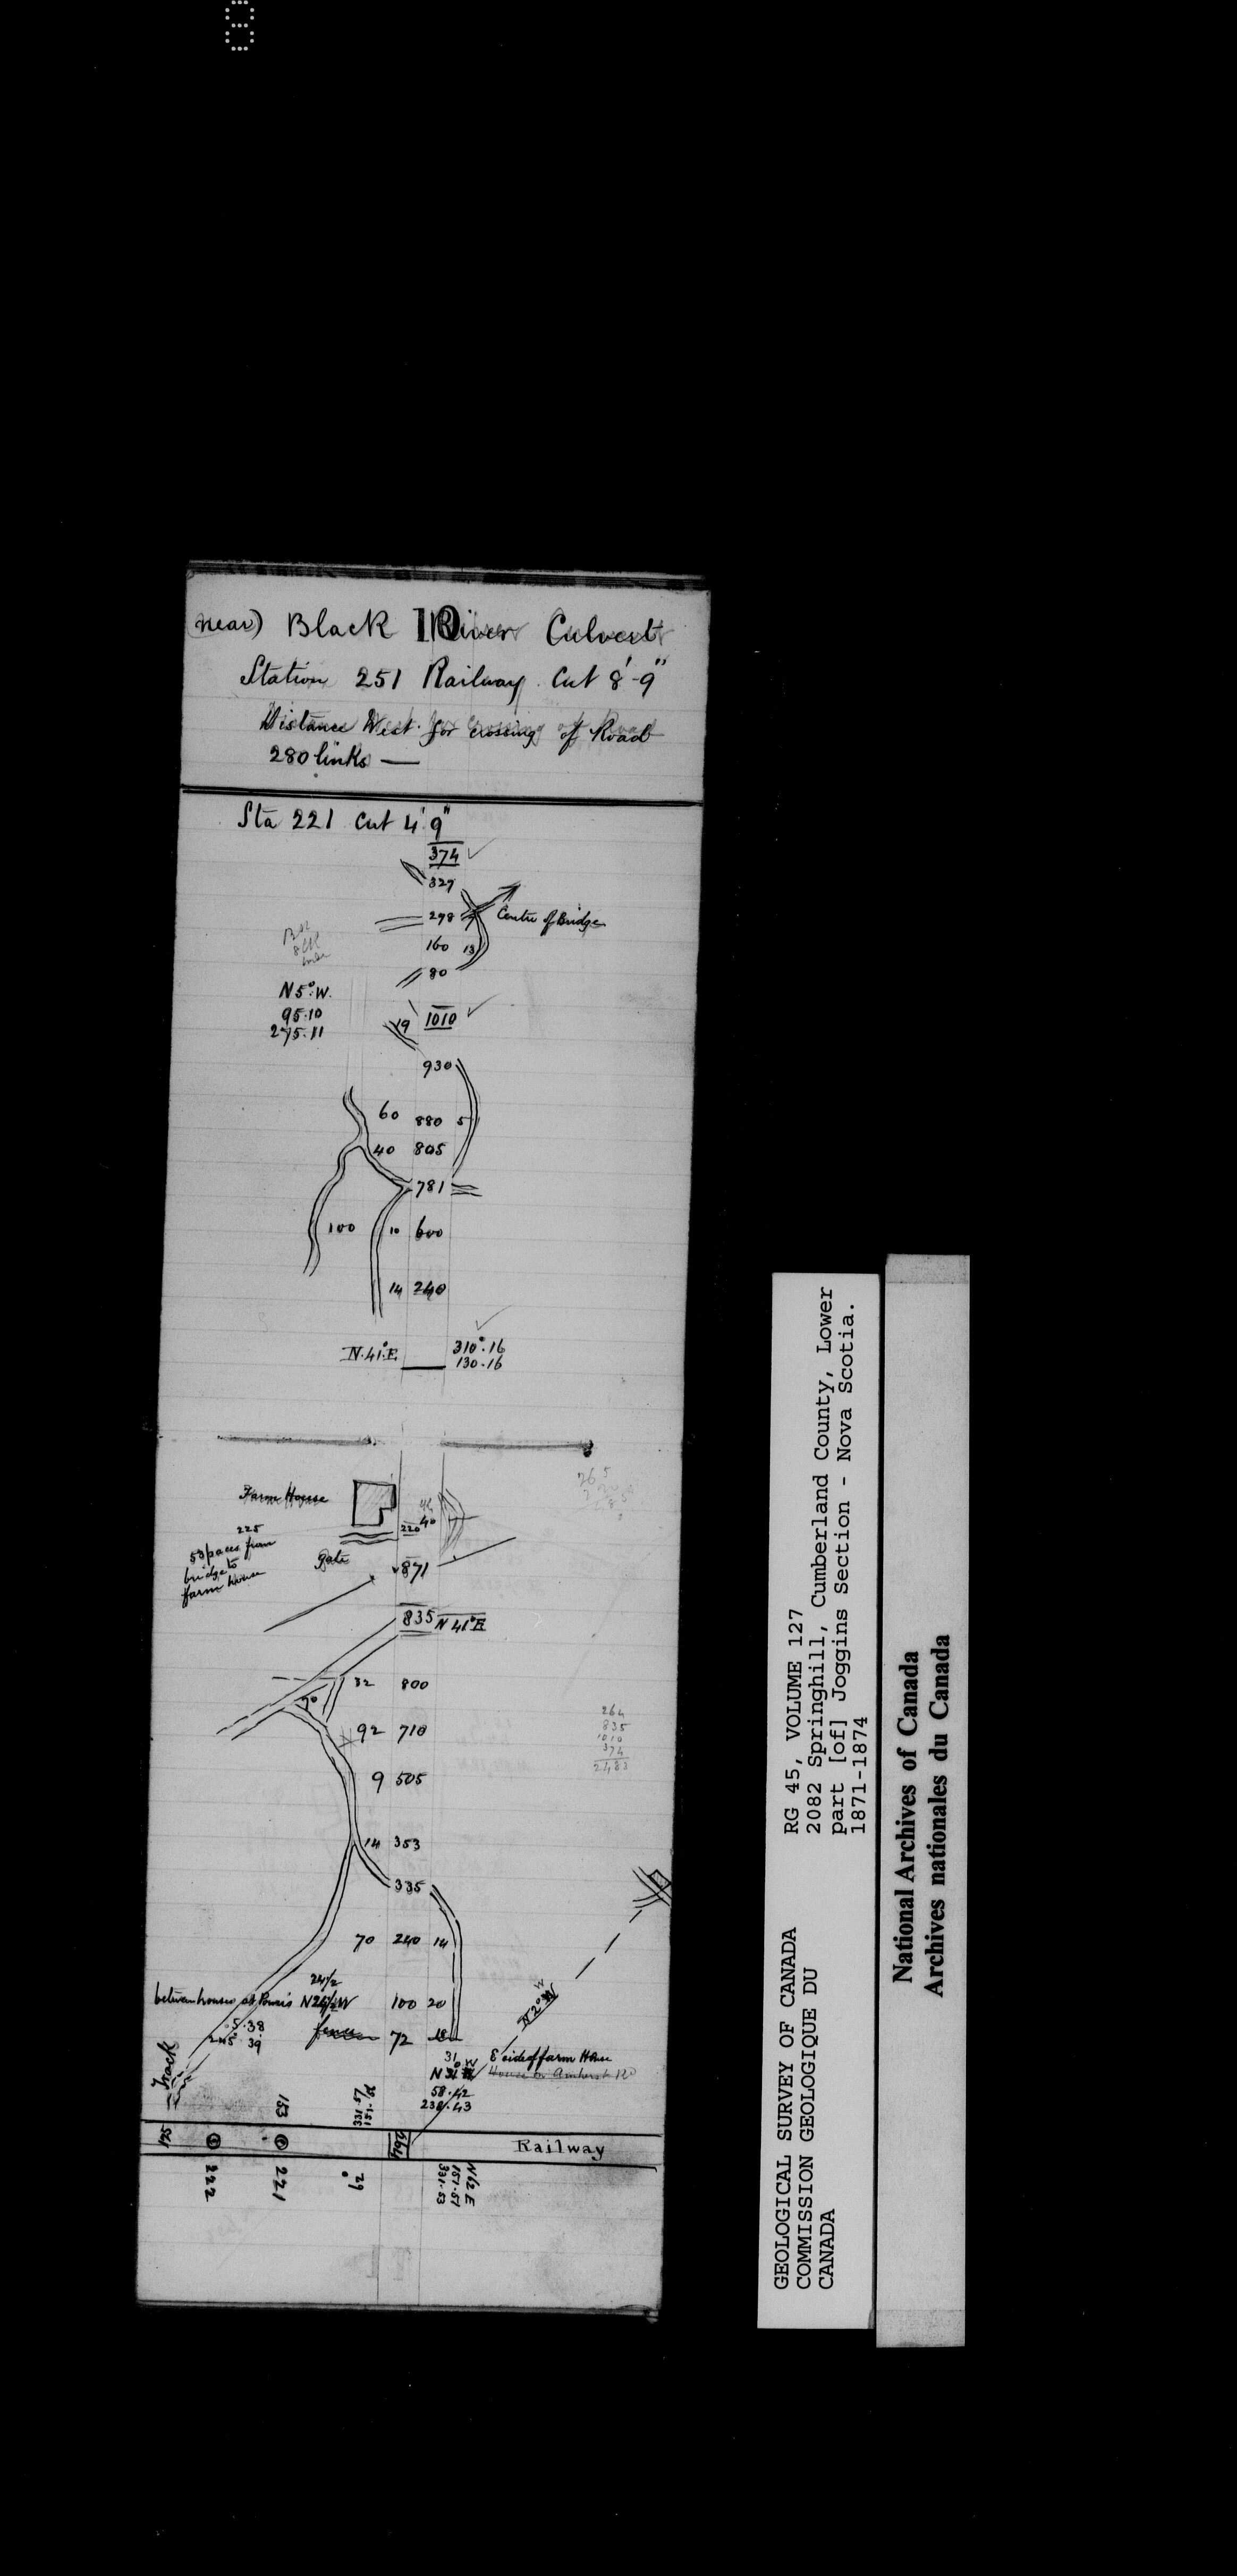 8
10
(near) Black River Culvert
Station 251 Railway Cut 8'-9"
Distance West for crossing of Road
280 links —
Sta 221 Cut 4'.9"
374
327
298 Centre of Bridge
160 13
80
N5°.W.
95.10
275.11
19 1010
930
60 880 5
40 805
781
100 10 600
14 240
N.41°.E 310°.16
130.16
Farm House
40
220
225
53 paces from
bridge to
farm house
Gate
871
835 N 41°E
32 800
70
92 710
264
835
1010
374
2483
9 505
14 353
335
70 240 14
24 1/2
between houses at Power's N24 1/2 W 100 20
5.38
245° 39
fence 72 18
N2°W
Track
31
N31°W
E side of farm House
House on Amherst Rd
58.42
238.43
153
125
264
Railway
222
221
29
N62E
151.51
331.53
GEOLOGICAL SURVEY OF CANADA
COMMISSION GEOLOGIQUE DU
CANADA
RG 45, VOLUME 127
2082 Springhill, Cumberland County, Lower
part [of] Joggins Section - Nova Scotia.
1871-1874
National Archives of Canada
Archives nationales du Canada